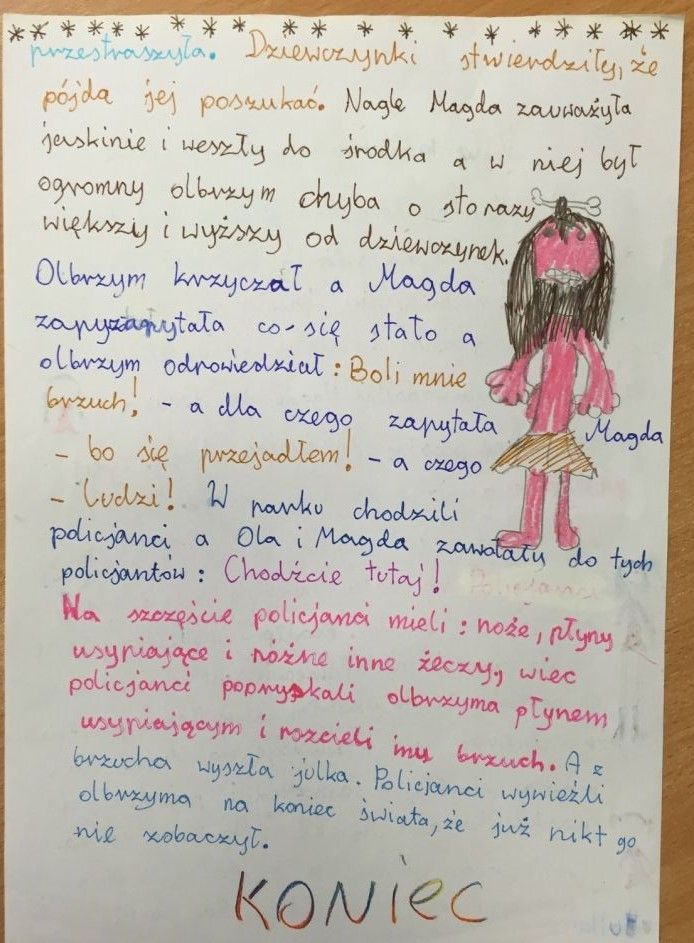 przestraszyła. Dziewczynki stwierdziły, że
pójdą jej poszukać. Nagle Magda zauważyła
jaskinie i weszły do środka a w niej był
ogromny olbrzym chyba o sto razy
większy i wyższy od dziewczynek.
Olbrzym krzyczał a Magda
zapytała co-się stało a
olbrzym odpowiedział: Boli mnie
brzuch! - a dla czego zapytała Magda
- bo się przejadłem! - a czego
- ludzi! W parku chodzili
policjanci a Ola i Magda zawołały do tych
policjantów: Chodźcie tutaj!
Na szczęście policjanci mieli: noże, płyny
usypiające i różne inne żeczy, wiec
policjanci popryskali olbrzyma płynem
usypiającym i rozcieli mu brzuch. A z
brzucha wyszła julka. Policjanci wywieźli
olbrzyma na koniec świata, że już nikt go
nie zobaczył.
KONIEC